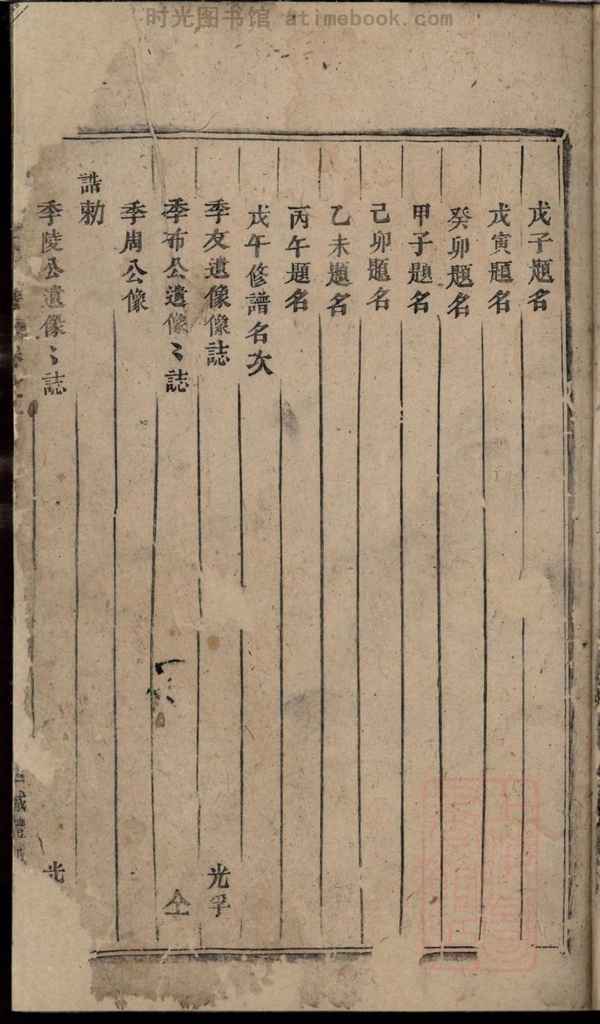 时光图书馆 atimebook.com
戊子題名
戊寅題名
癸卯題名
甲子題名
己卯題名
乙未題名
丙午題名
戊午修譜名次
季友遺像像誌 光孚
季布公遺像〻誌 仝
季周公像
誥勅
季陵公遺像〻誌 光